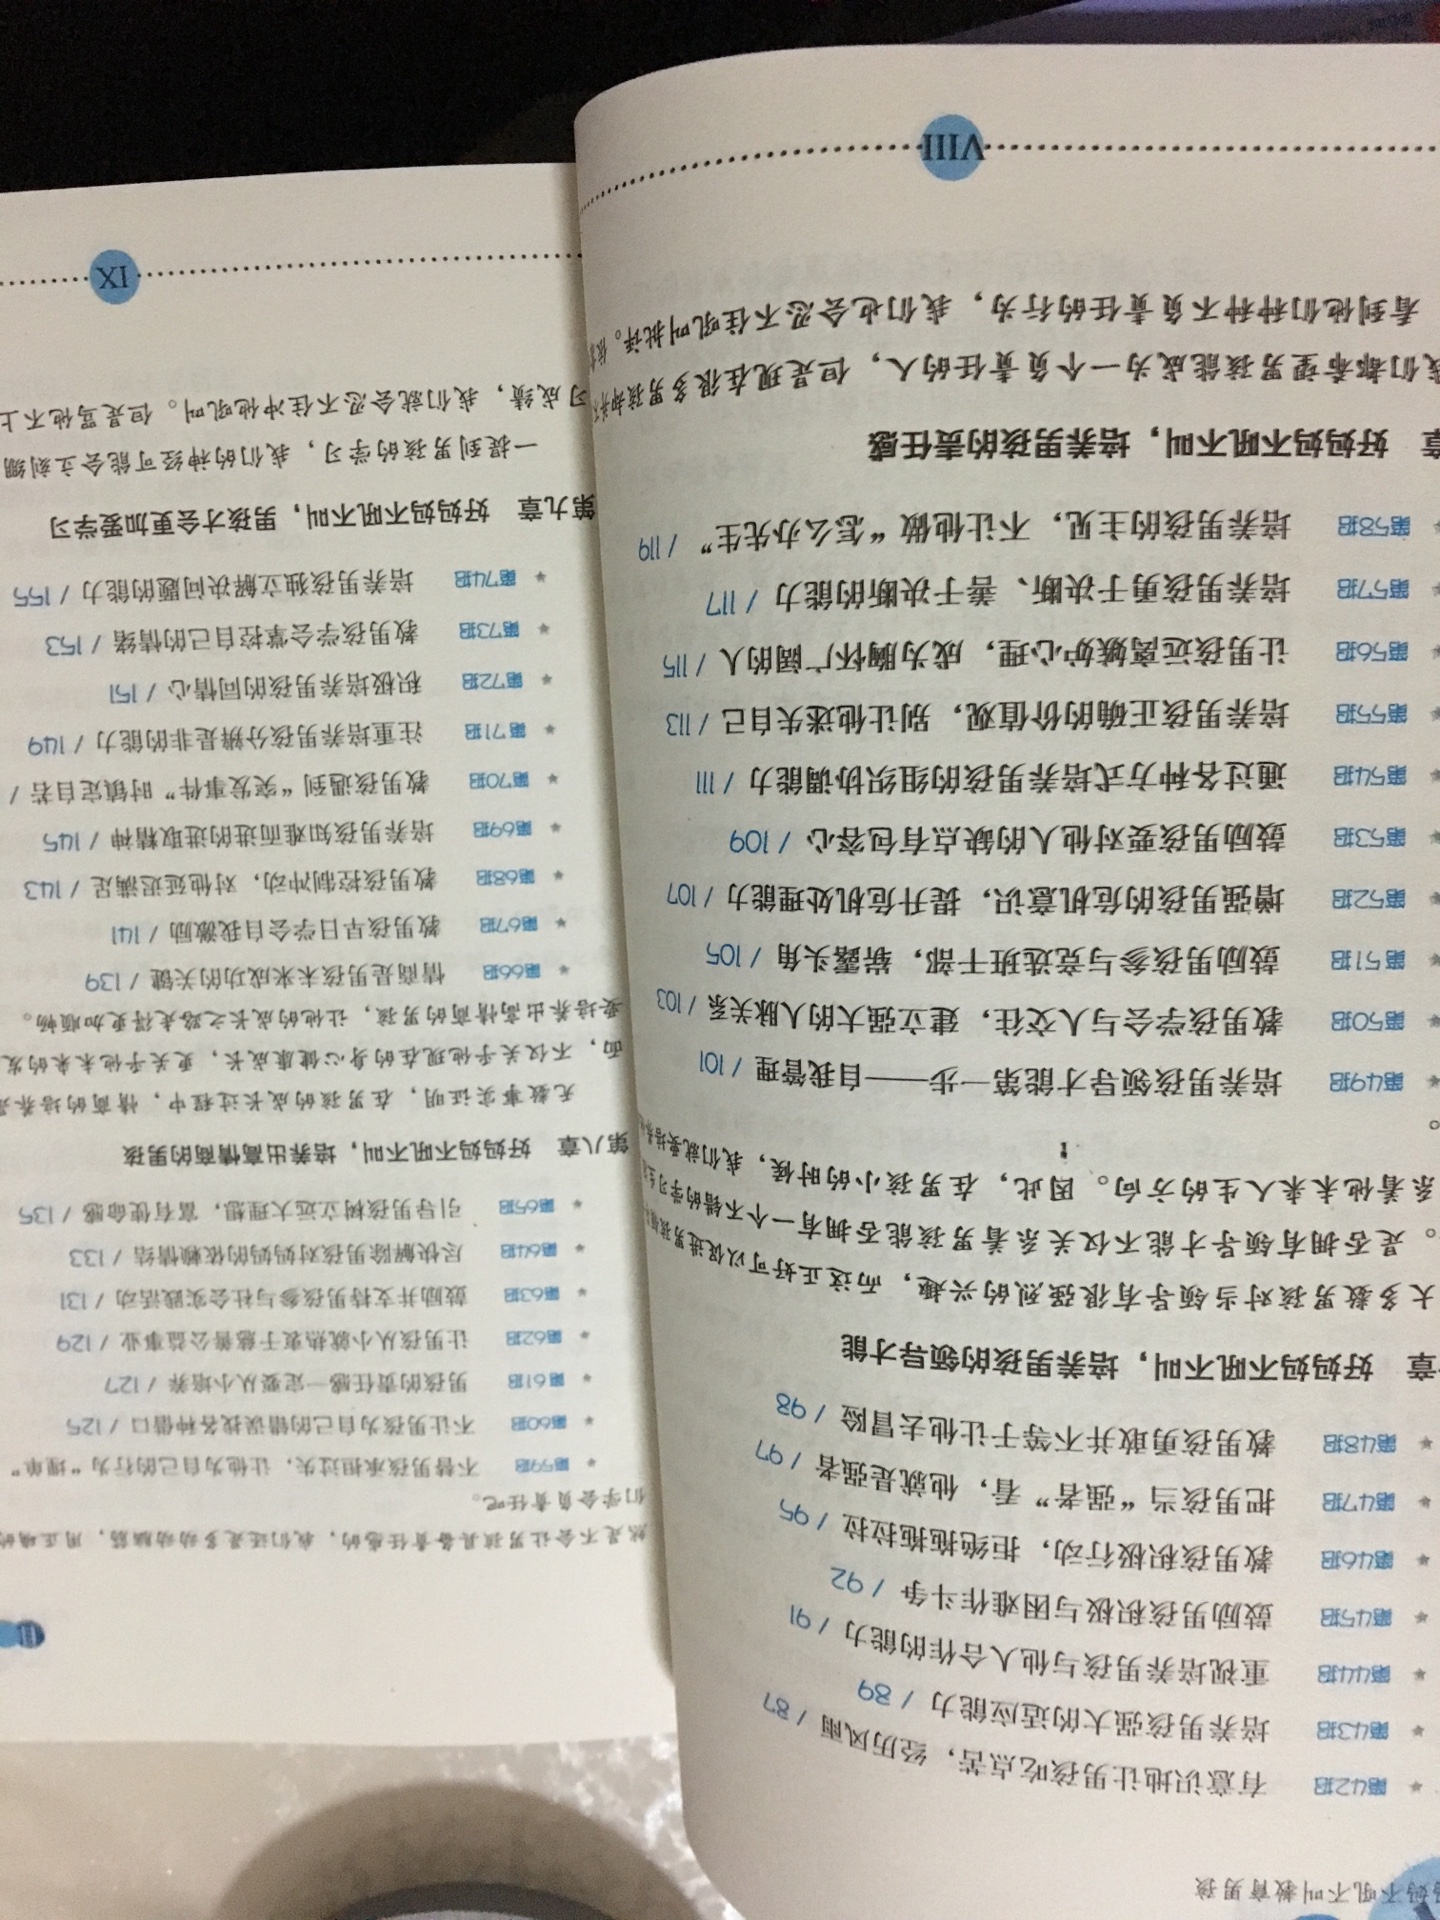 妈不吼不叫教育男孩
★ 第42招 有意识地让男孩吃点苦，经历风雨 / 87
★ 第43招 培养男孩强大的适应能力 / 89
★ 第44招 重视培养男孩与他人合作的能力 / 91
★ 第45招 鼓励男孩积极与困难作斗争 / 92
★ 第46招 教男孩积极行动，拒绝拖拖拉拉 / 95
★ 第47招 把男孩当“强者”看，他就是强者 / 97
★ 第48招 教男孩勇敢并不等于让他去冒险 / 98
章 好妈妈不吼不叫，培养男孩的领导才能
大多数男孩对当领导有很强烈的兴趣，而这正好可以促进男孩
。是否拥有领导才能不仅关系着男孩能否拥有一个不错的学习生
系着他未来人生的方向。因此，在男孩小的时候，我们就要培养
。
★ 第49招 培养男孩领导才能第一步——自我管理 / 101
★ 第50招 教男孩学会与人交往，建立强大的人脉关系 / 103
★ 第51招 鼓励男孩参与竞选班干部，崭露头角 / 105
★ 第52招 增强男孩的危机意识，提升危机处理能力 / 107
★ 第53招 鼓励男孩要对他人的缺点有包容心 / 109
★ 第54招 通过各种方式培养男孩的组织协调能力 / 111
★ 第55招 培养男孩正确的价值观，别让他迷失自己 / 113
★ 第56招 让男孩远离嫉妒心理，成为胸怀广阔的人 / 115
★ 第57招 培养男孩勇于决断、善于决断的能力 / 117
★ 第58招 培养男孩的主见，不让他做“怎么办先生” / 119
章 好妈妈不吼不叫，培养男孩的责任感
我们都希望男孩能成为一个负责任的人，但是现在很多男孩却不
看到他们种种不负责任的行为，我们也会忍不住吼叫批评。依
VIII
然是不会让男孩具备责任感的，我们还是多动动脑筋，用正确的
们学会负责任吧。
★ 第59招 不替男孩承担过失，让他为自己的行为“埋单”
★ 第60招 不让男孩为自己的错误找各种借口 / 125
★ 第61招 男孩的责任感一定要从小培养 / 127
★ 第62招 让男孩从小就热衷于慈善公益事业 / 129
★ 第63招 鼓励并支持男孩参与社会实践活动 / 131
★ 第64招 尽快解除男孩对妈妈的依赖情结 / 133
★ 第65招 引导男孩树立远大理想，富有使命感 / 135
第八章 好妈妈不吼不叫，培养出高情商的男孩
无数事实证明，在男孩的成长过程中，情商的培养是
面，不仅关乎他现在的身心健康成长，更关乎他未来的发
要培养出高情商的男孩，让他的成长之路走得更加顺畅。
★ 第66招 情商是男孩未来成功的关键 / 139
★ 第67招 教男孩早日学会自我激励 / 141
★ 第68招 教男孩控制冲动，对他延迟满足 / 143
★ 第69招 培养男孩知难而进的进取精神 / 145
★ 第70招 教男孩遇到“突发事件”时镇定自若 /
★ 第71招 注重培养男孩分辨是非的能力 / 149
★ 第72招 积极培养男孩的同情心 / 151
★ 第73招 教男孩学会掌控自己的情绪 / 153
★ 第74招 培养男孩独立解决问题的能力 / 155
第九章 好妈妈不吼不叫，男孩才会更加爱学习
一提到男孩的学习，我们的神经可能会立刻绷
习成绩，我们就会忍不住冲他吼叫。但是骂他不上
IX